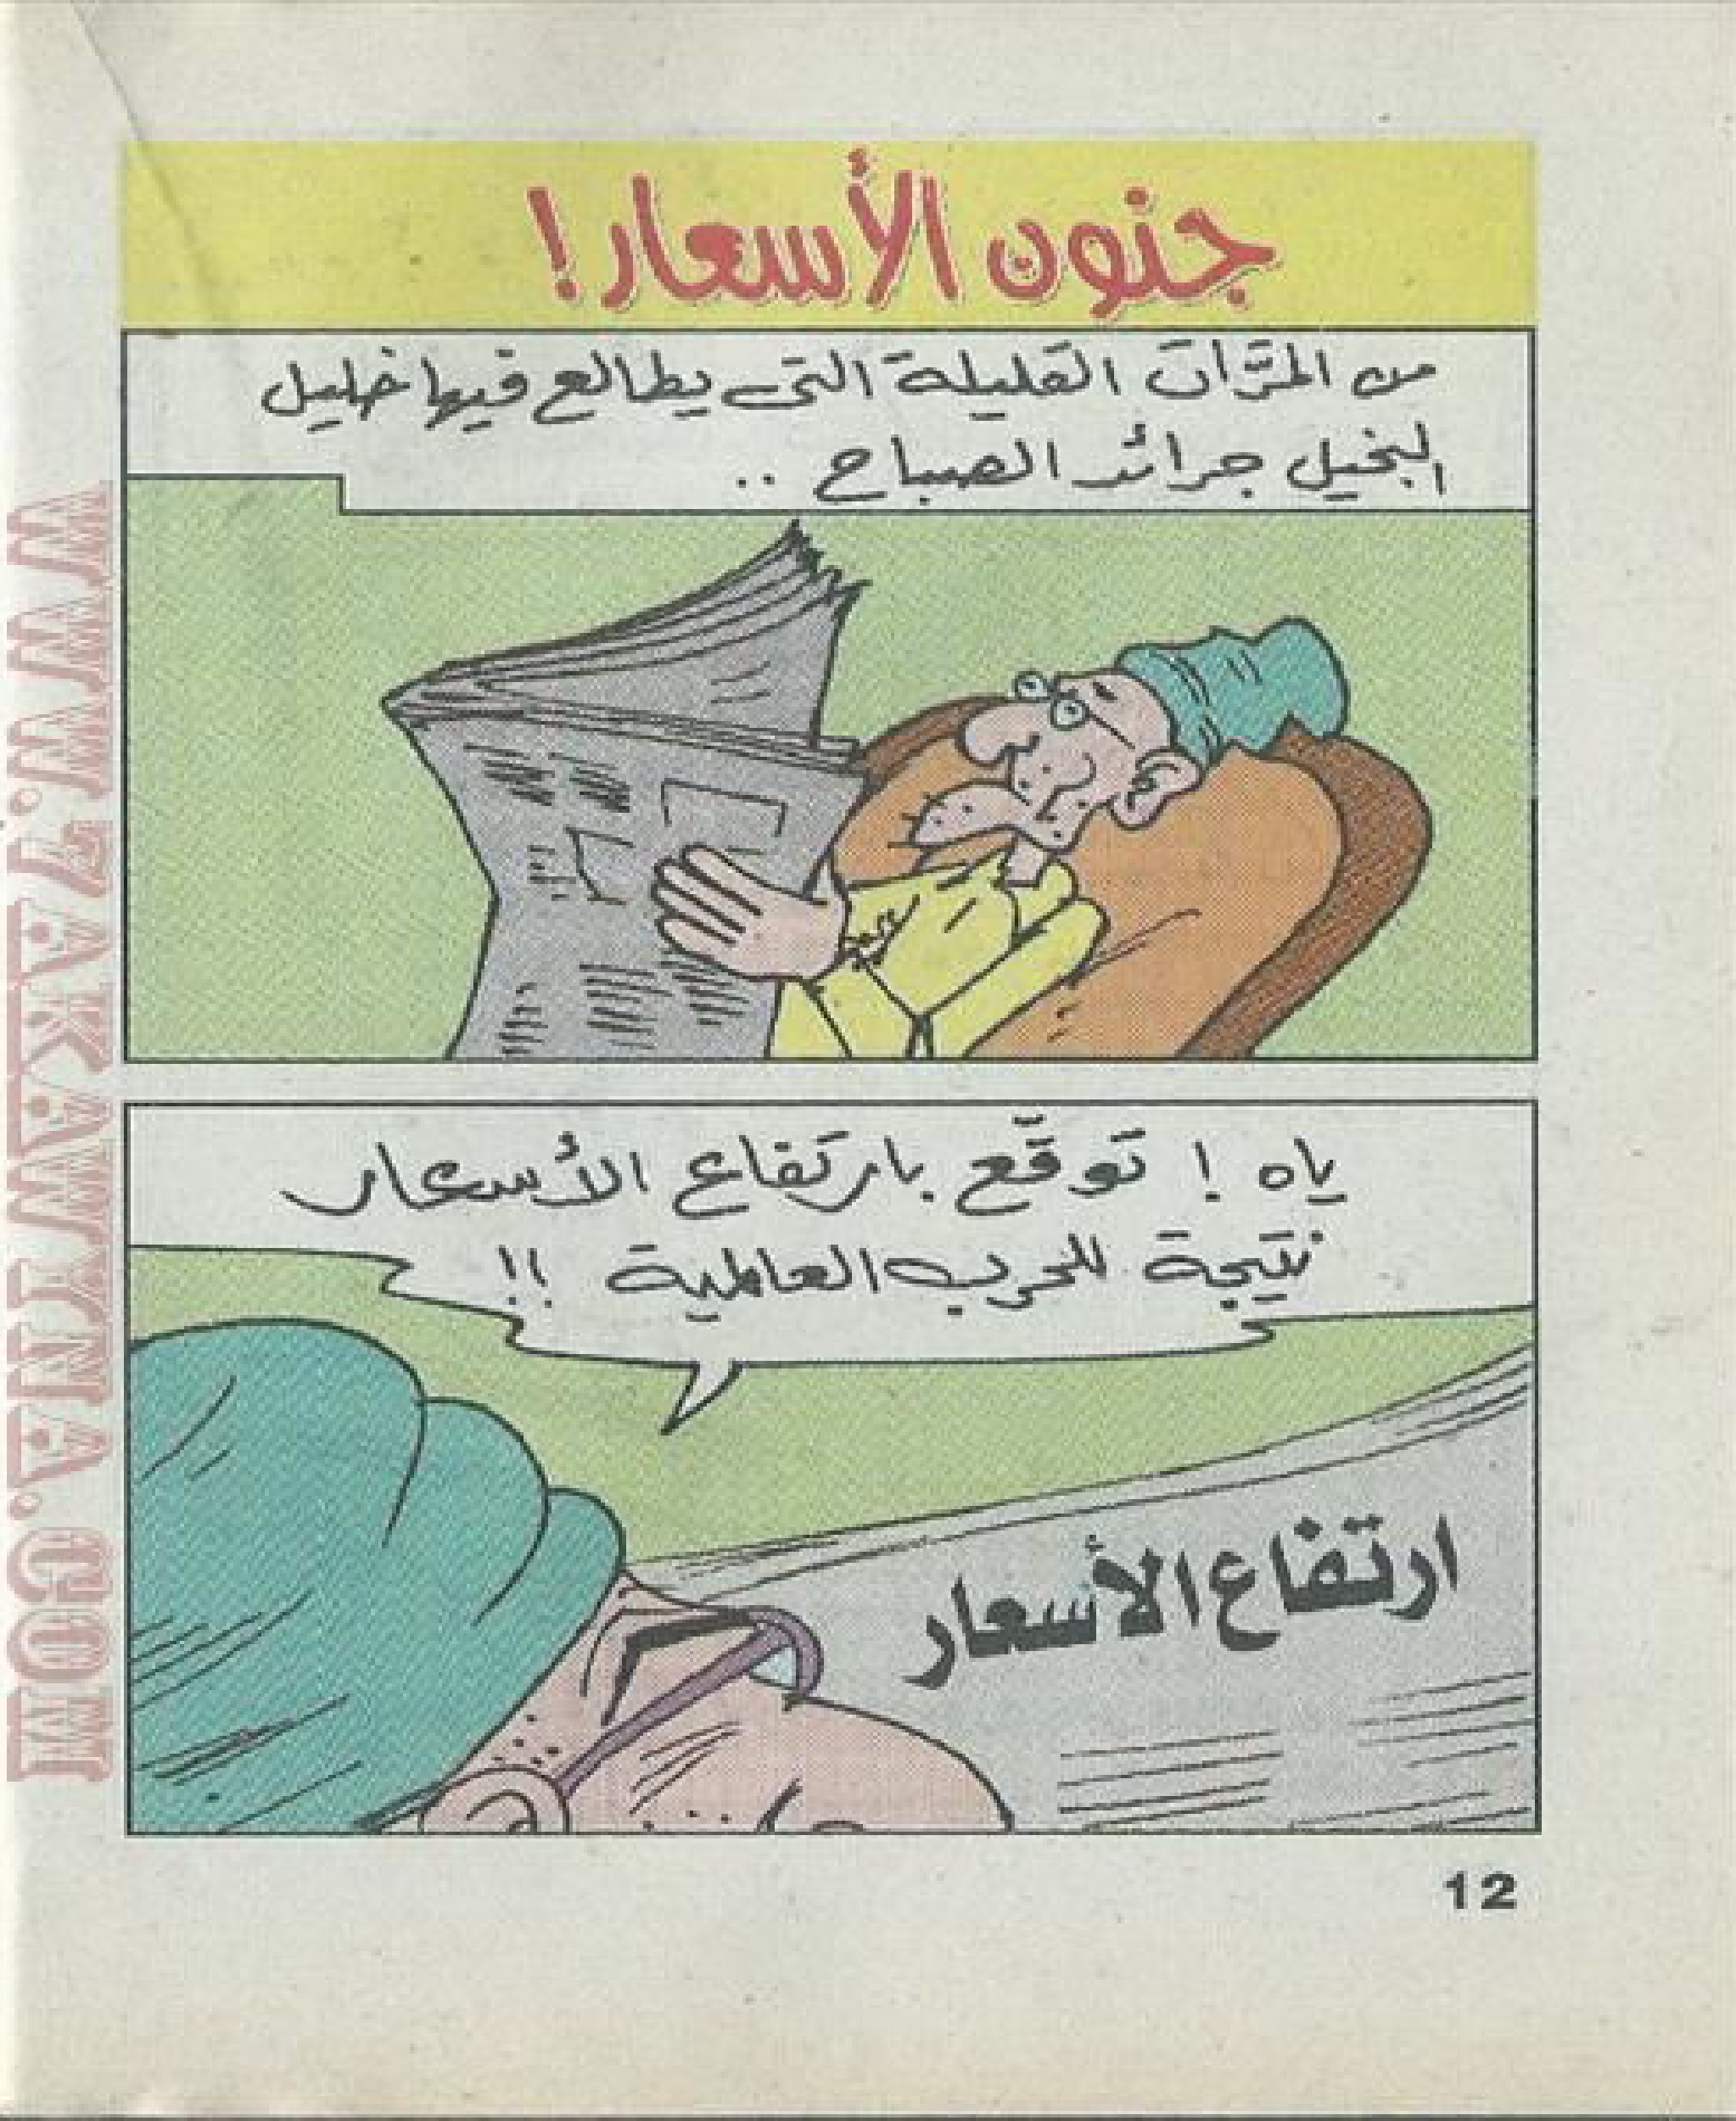 جنون الأسعار!
من المرَّات القليلة التى يطالع فيها خليل
البخيل جرائد الصباح ..
ياه ! توقّع بارتفاع الأسعار
نتيجة للحرب العالمية !!
ارتفاع الأسعار
12
WWW.7AKAWINA.COM